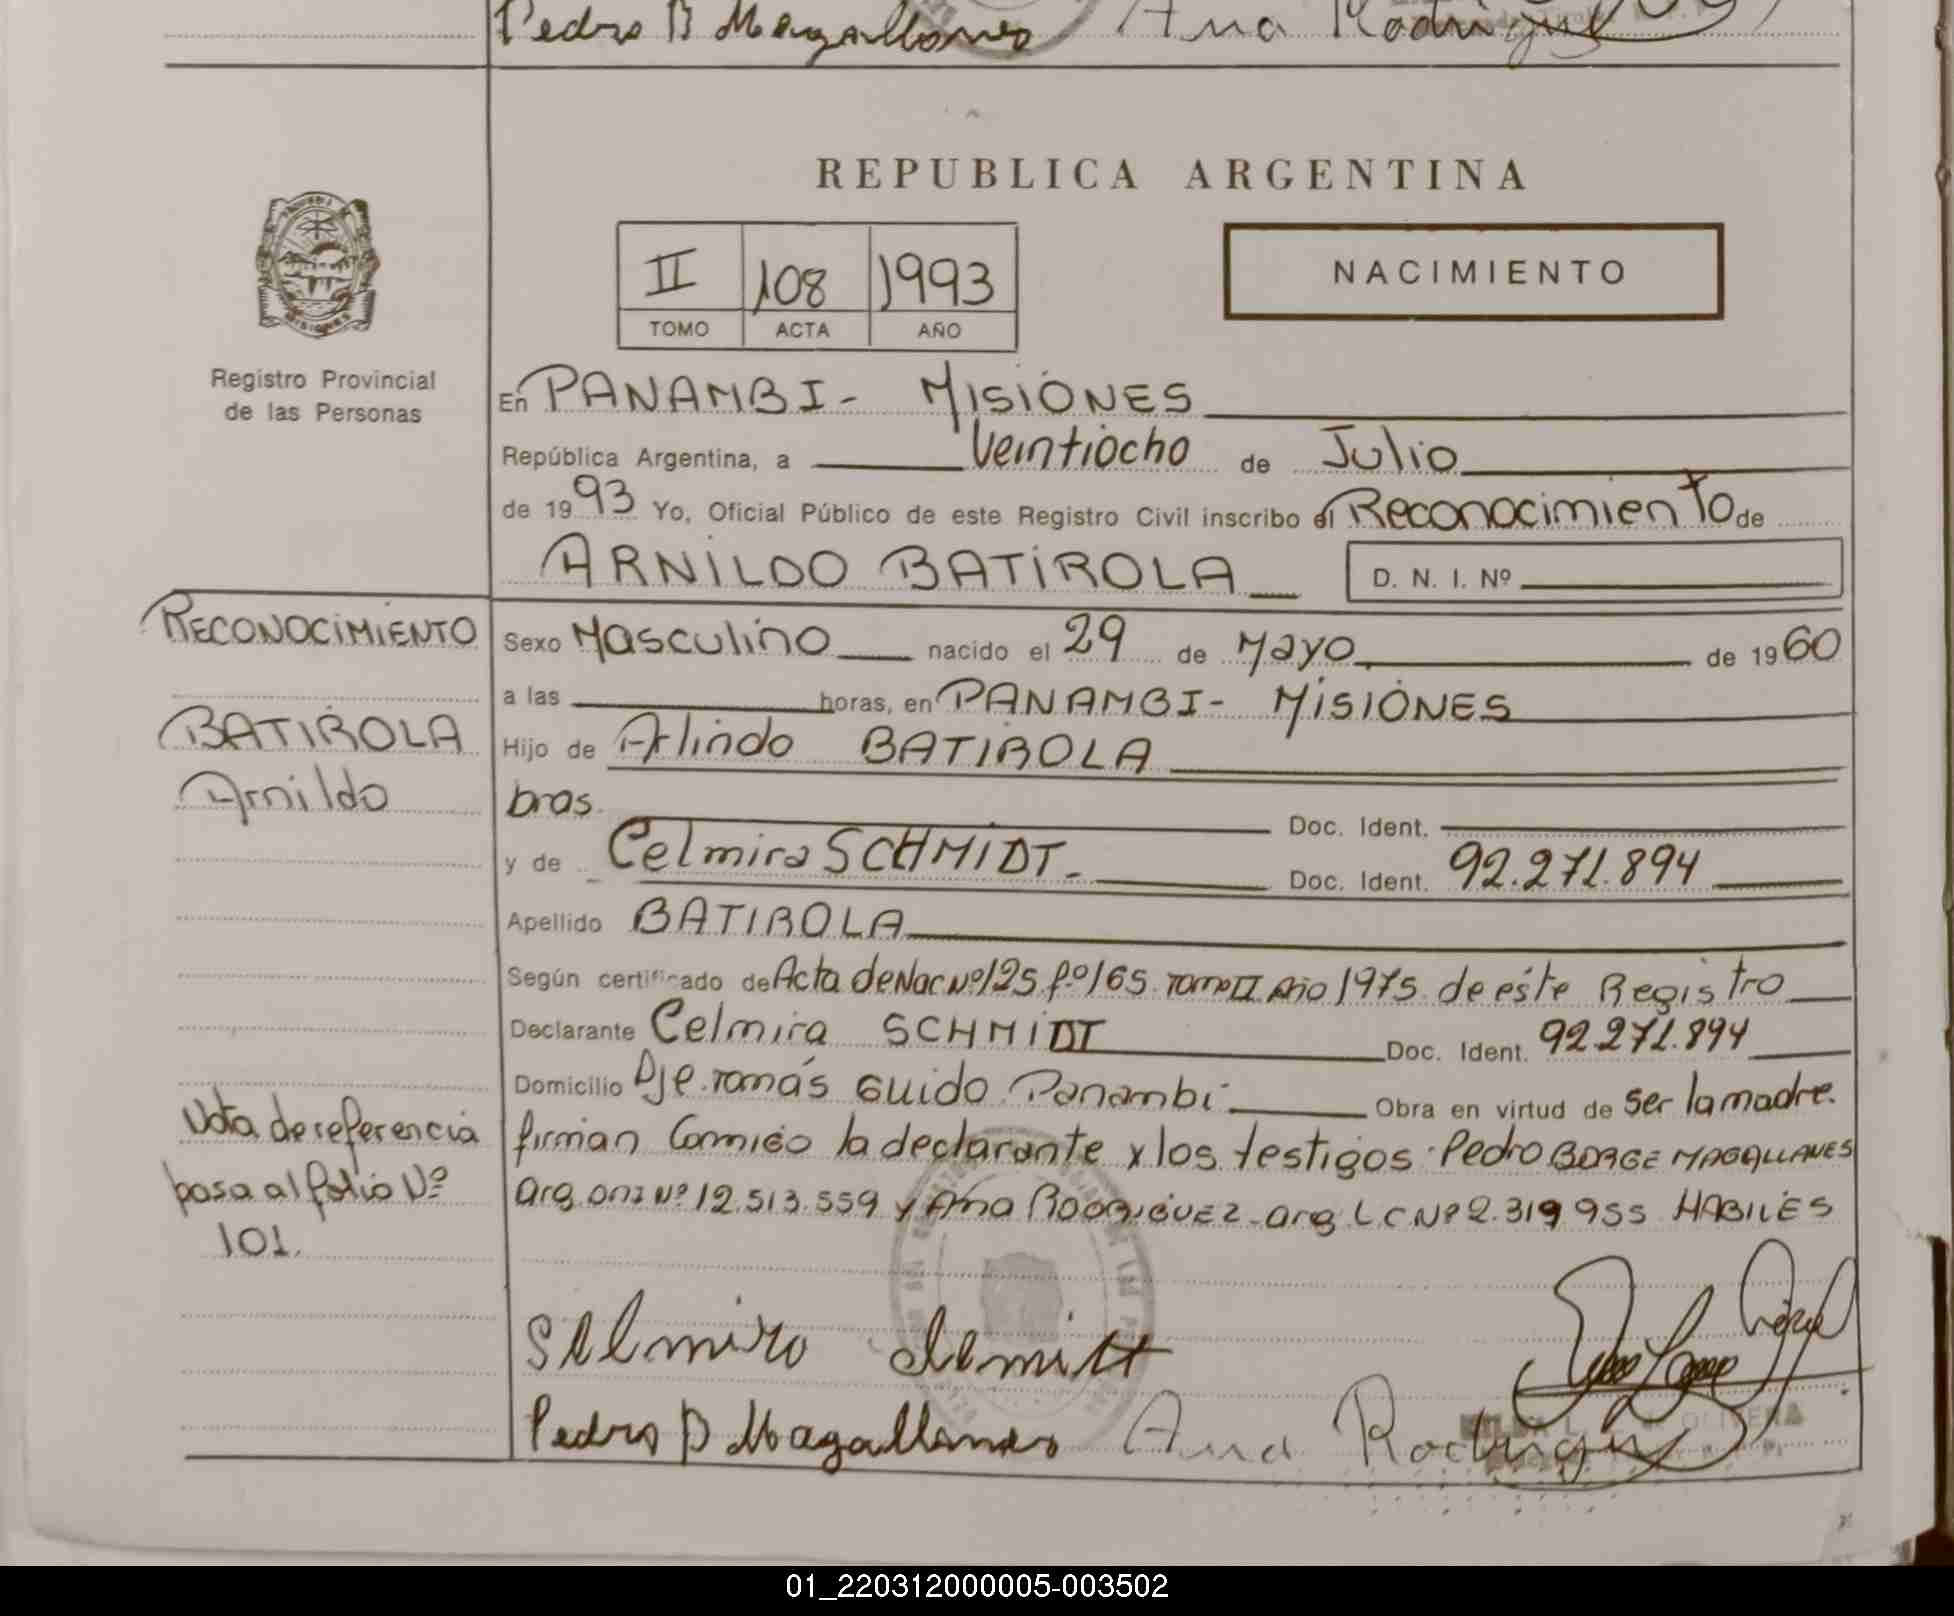 Pedro B Magallanes Ana Rodriguez
REPUBLICA ARGENTINA
NACIMIENTO
II 108 1993
TOMO ACTA AÑO
MISIONES
Registro Provincial
de las Personas
En PANAMBI - MISIONES
República Argentina, a Veintiocho de Julio
de 1993 Yo, Oficial Público de este Registro Civil inscribo el Reconocimiento de
ARNILDO BATIROLA D. N. I. Nº
RECONOCIMIENTO
BATIROLA
Arnildo
Sexo Masculino nacido el 29 de Mayo de 1960
a las horas, en PANAMBI - MISIONES
Hijo de Arlindo BATIROLA
bras. Doc. Ident.
y de Celmira SCHMIDT - Doc. Ident. 92.271.894
Apellido BATIROLA
Según certificado de Acta de Nac Nº 125 fº 165 Tomo II Año 1975 de éste Registro
Declarante Celmira SCHMIDT Doc. Ident. 92.271.894
Domicilio Pje. Tomás Guido Panambi Obra en virtud de ser la madre.
firman Conmigo la declarante y los testigos Pedro BORGE MAGALLANES
arg. DNI Nº 12.513.559 y Ana RODRIGUEZ - arg LC Nº 2.319 955 HABILES
Nota de referencia
pasa al folio Nº
101.
Selmiro Semitt
Pedro B Magallanes Ana Rodriguez
OLIVERA
01_220312000005-003502